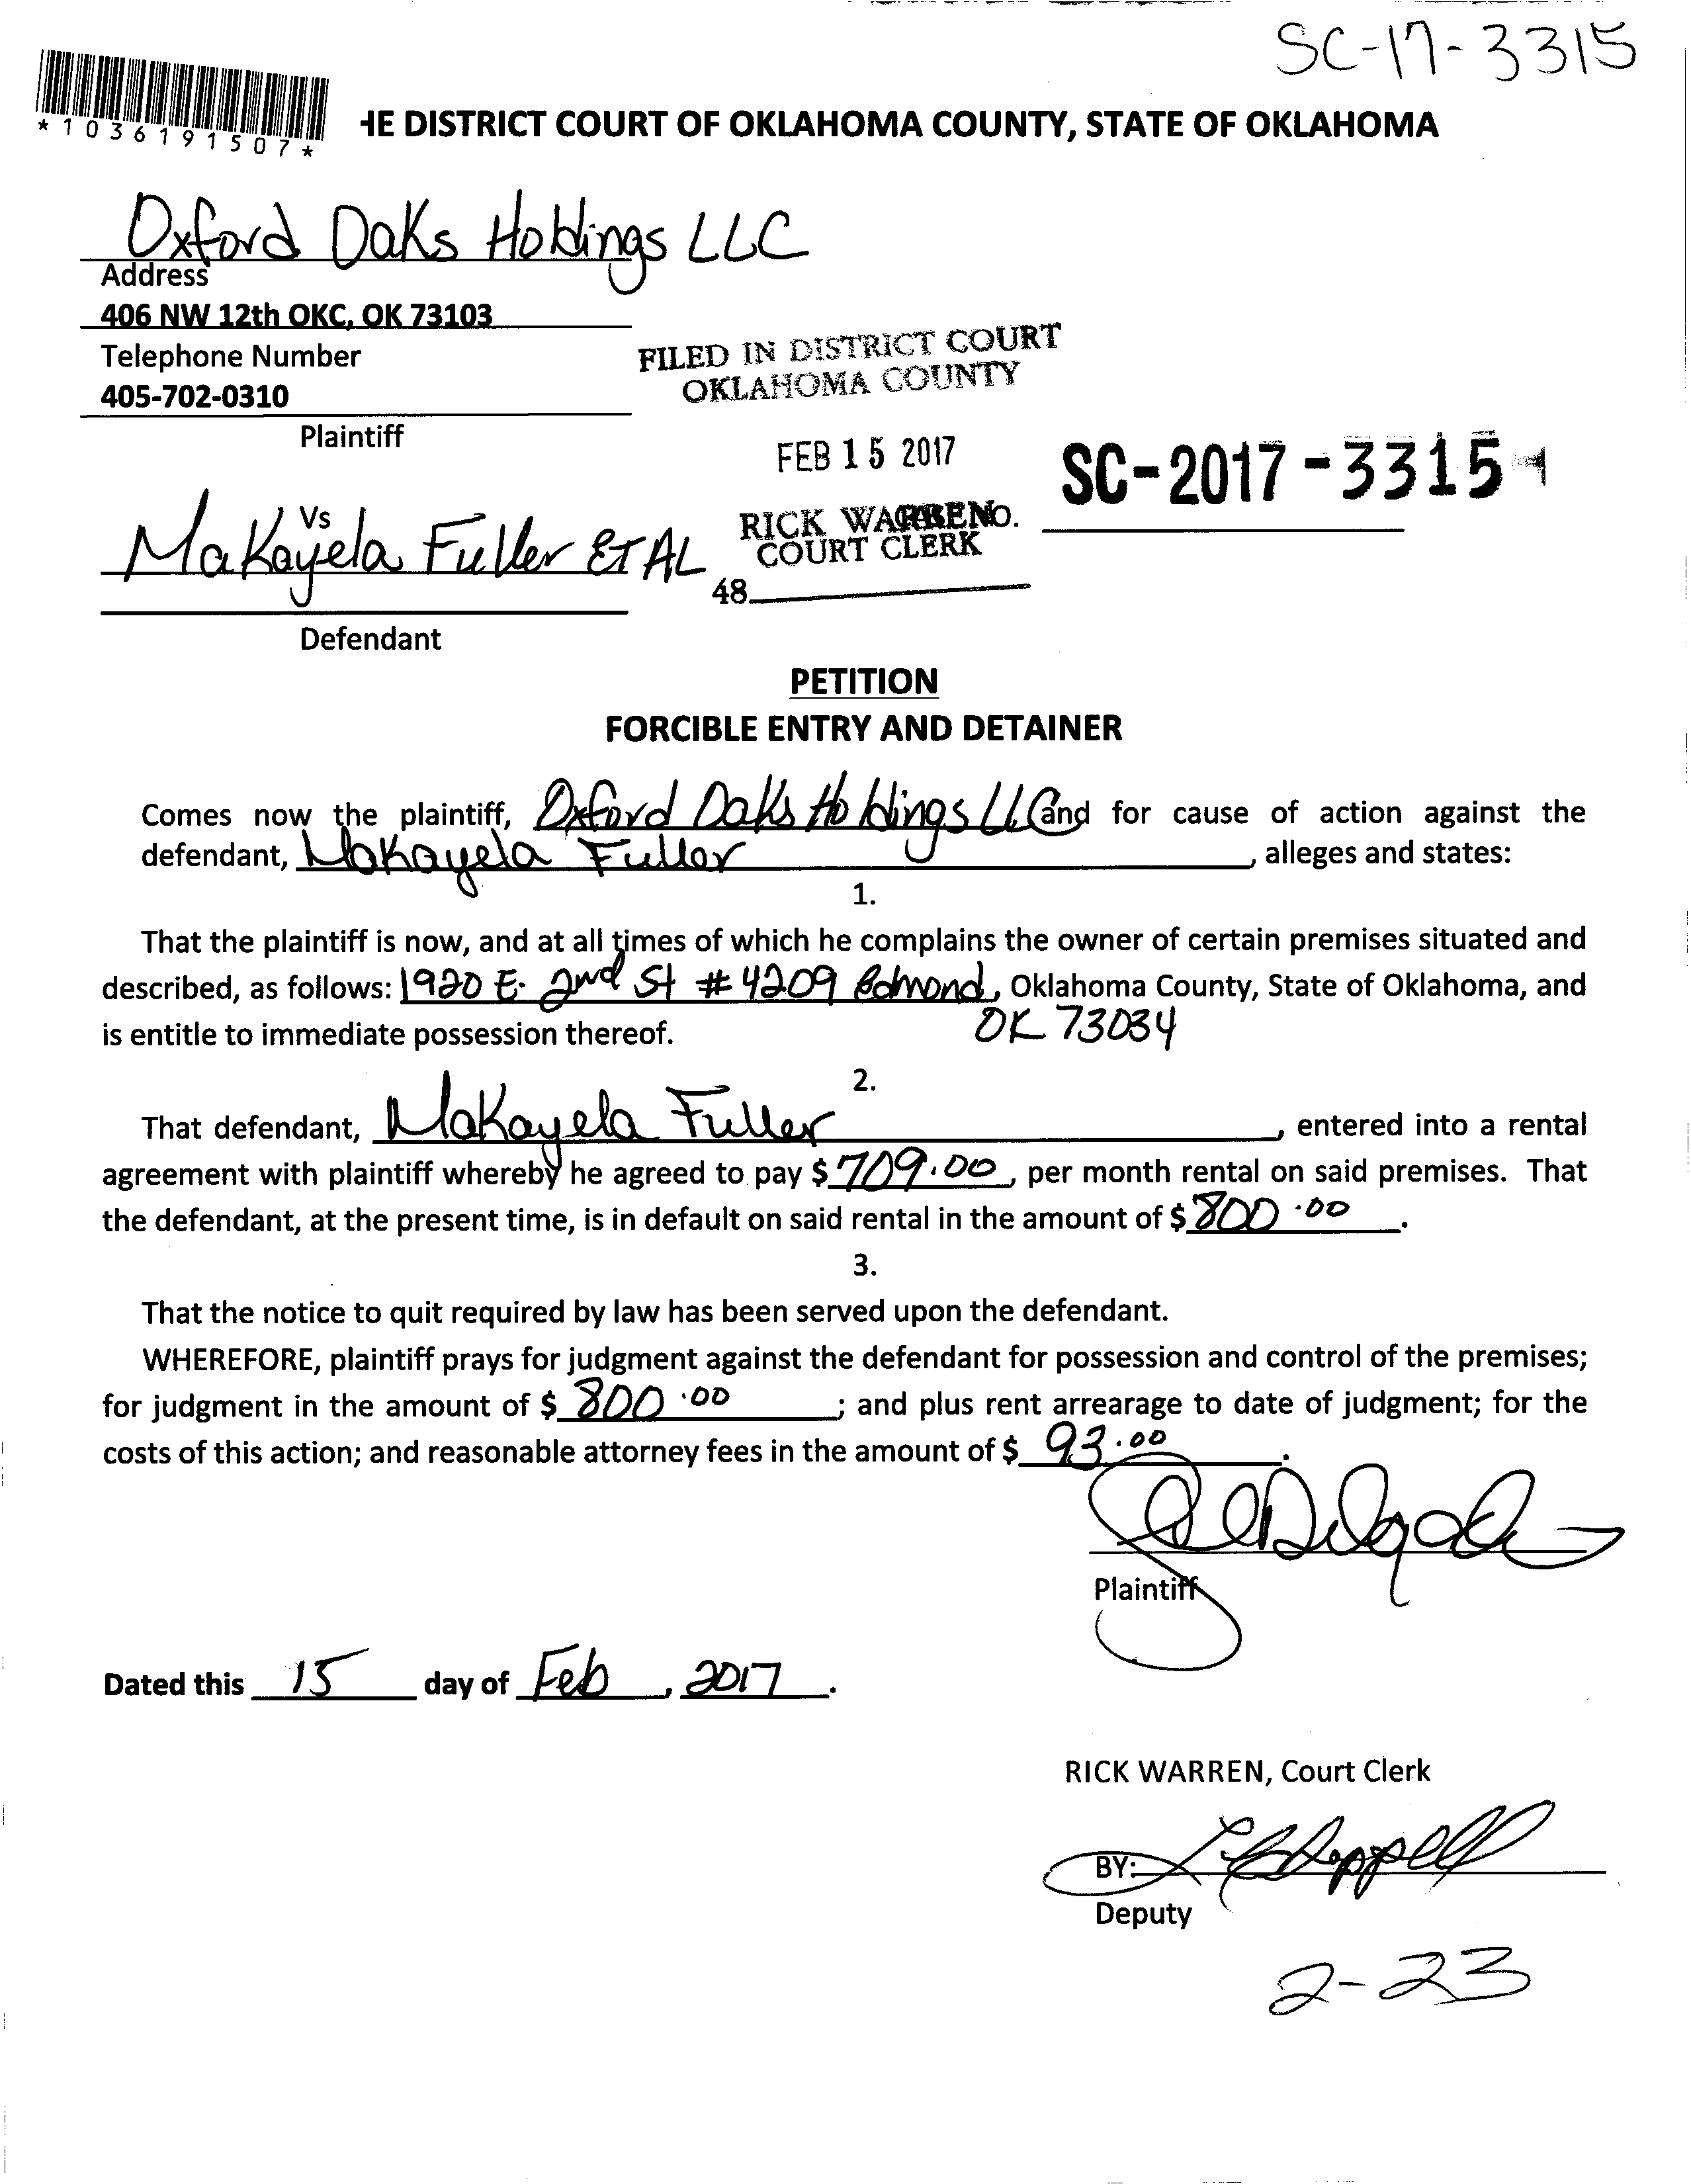 SC-17-3315
*1036191507*
HE DISTRICT COURT OF OKLAHOMA COUNTY, STATE OF OKLAHOMA
Oxford Oaks Holdings LLC
Address
406 NW 12th OKC, OK 73103
Telephone Number
405-702-0310
Plaintiff
FILED IN DISTRICT COURT
OKLAHOMA COUNTY
FEB 15 2017
SC-2017-3315
RICK WARREN
COURT CLERK
48
Vs
Makayela Fuller ET AL
Defendant
PETITION
FORCIBLE ENTRY AND DETAINER
Comes now the plaintiff, Oxford Oaks Holdings LLC and for cause of action against the
defendant, Makayela Fuller, alleges and states:
1.
That the plaintiff is now, and at all times of which he complains the owner of certain premises situated and
described, as follows: 1920 E. 2nd St # 4209 Edmond, Oklahoma County, State of Oklahoma, and
OK 73034
is entitle to immediate possession thereof.
2.
That defendant, Makayela Fuller, entered into a rental
agreement with plaintiff whereby he agreed to pay $ 709.00, per month rental on said premises. That
the defendant, at the present time, is in default on said rental in the amount of $ 800.00.
3.
That the notice to quit required by law has been served upon the defendant.
WHEREFORE, plaintiff prays for judgment against the defendant for possession and control of the premises;
for judgment in the amount of $ 800.00; and plus rent arrearage to date of judgment; for the
costs of this action; and reasonable attorney fees in the amount of $ 93.00.
Plaintiff
Dated this 15 day of Feb, 2017.
RICK WARREN, Court Clerk
BY:
Deputy
2-23